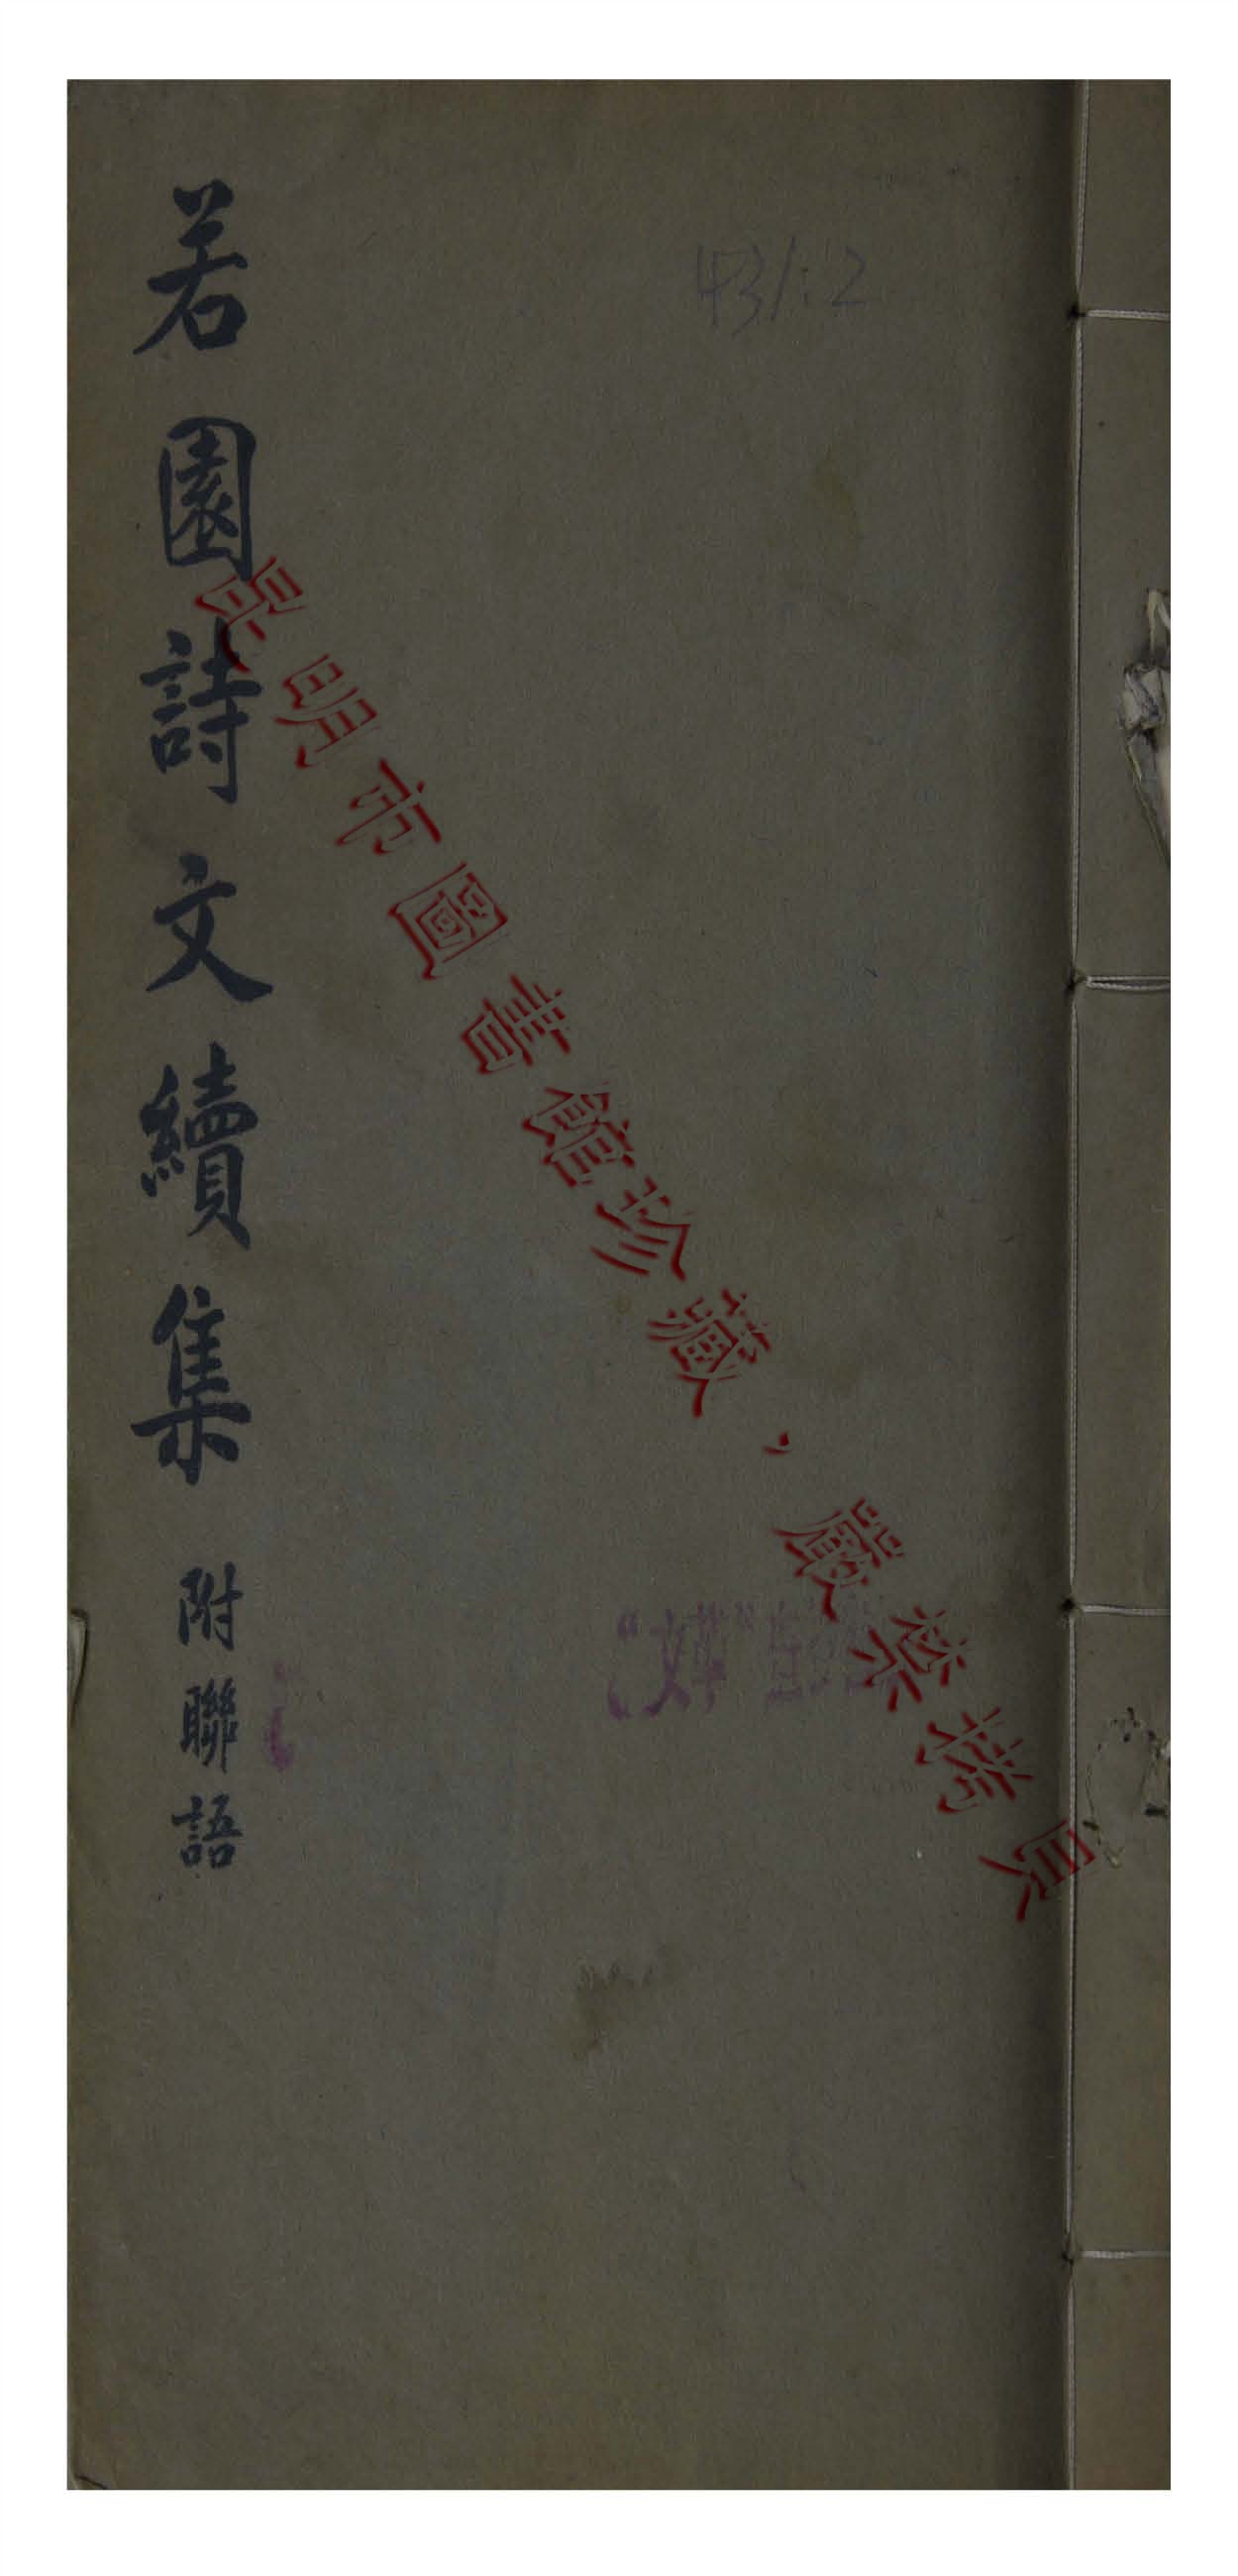 431:2
若園詩文續集 附聯語
昆明市圖書館珍藏，嚴禁拷貝